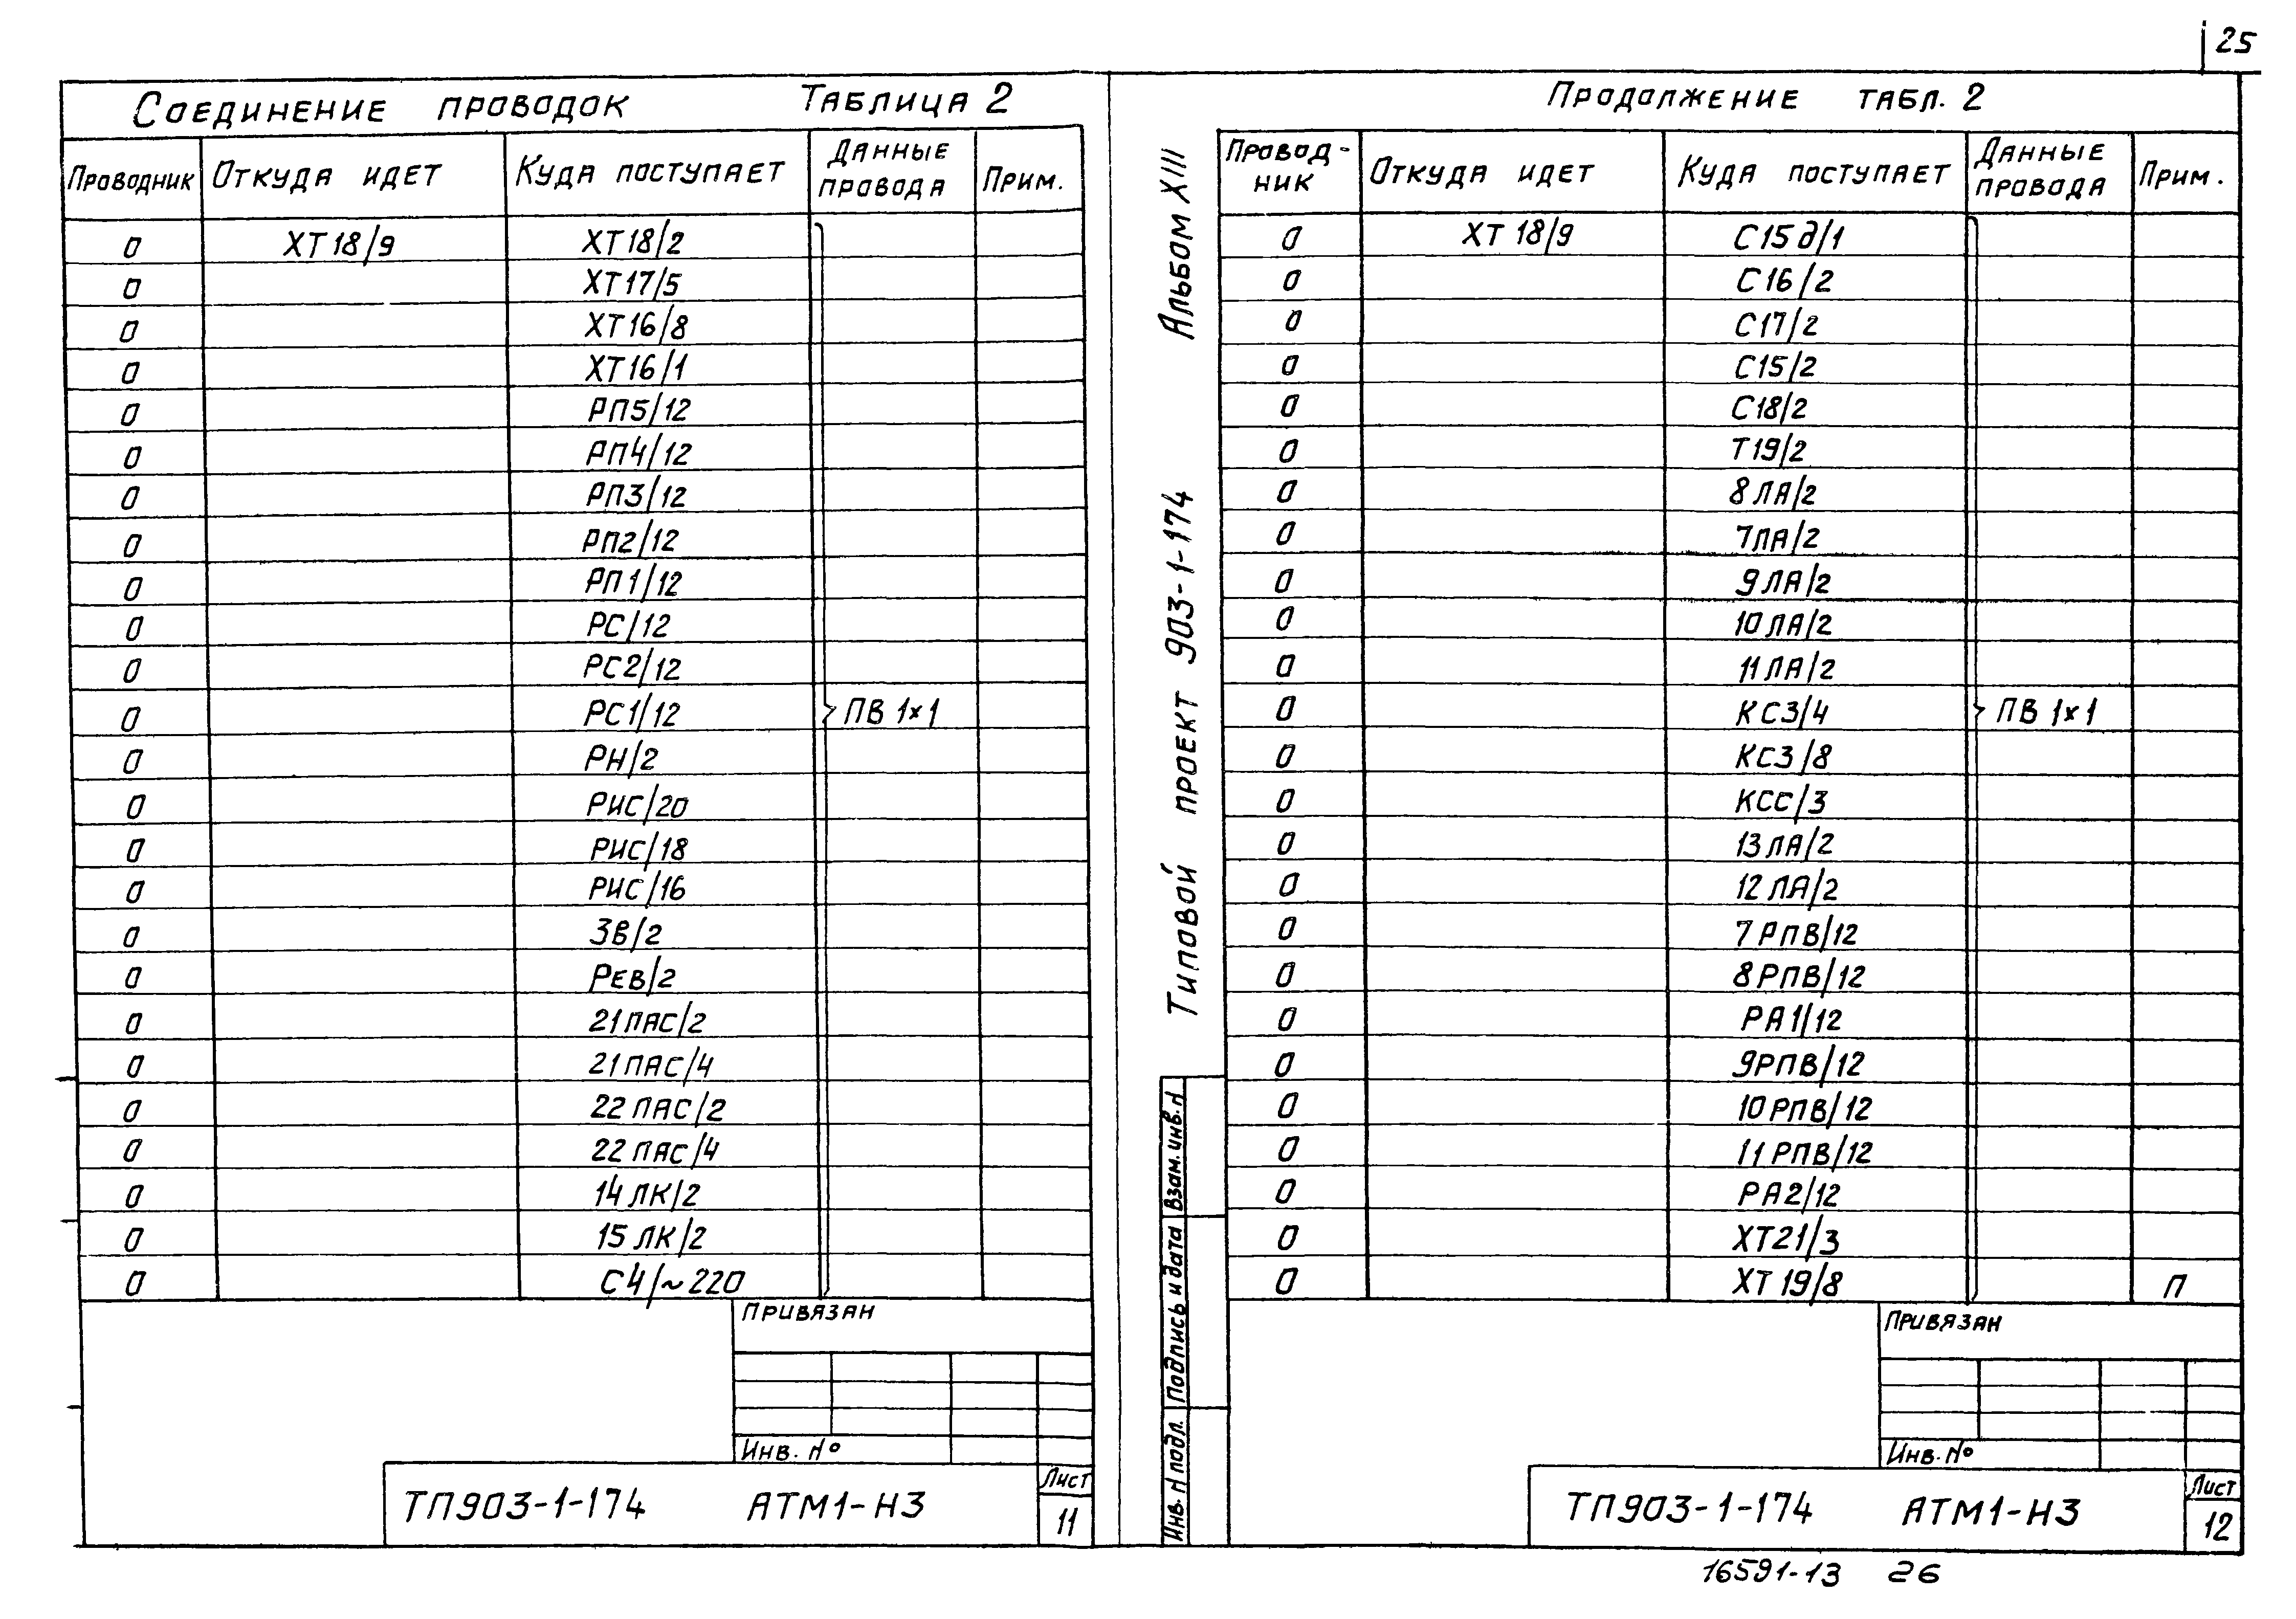 25
Соединение проводок Таблица 2
Проводник Откуда идет Куда поступает Данные провода Прим.
0 ХТ18/9 ХТ18/2
0 ХТ17/5
0 ХТ16/8
0 ХТ16/1
0 РП5/12
0 РП4/12
0 РП3/12
0 РП2/12
0 РП1/12
0 РС/12
0 РС2/12
0 РС1/12 ПВ 1×1
0 РН/2
0 РИС/20
0 РИС/18
0 РИС/16
0 ЗВ/2
0 РЕВ/2
0 21ПАС/2
0 21ПАС/4
0 22ПАС/2
0 22ПАС/4
0 14ЛК/2
0 15ЛК/2
0 С4/~220
Привязан
Инв. №
ТП903-1-174 АТМ1-Н3
Лист
11
Альбом XIII
Типовой проект 903-1-174
Взам. инв. №
Подпись и дата
Инв. № подл.
Продолжение табл. 2
Провод-ник Откуда идет Куда поступает Данные провода Прим.
0 ХТ18/9 С15д/1
0 С16/2
0 С17/2
0 С15/2
0 С18/2
0 Т19/2
0 8ЛА/2
0 7ЛА/2
0 9ЛА/2
0 10ЛА/2
0 11ЛА/2
0 КС3/4 ПВ 1×1
0 КС3/8
0 КСС/3
0 13ЛА/2
0 12ЛА/2
0 7РПВ/12
0 8РПВ/12
0 РА1/12
0 9РПВ/12
0 10РПВ/12
0 11РПВ/12
0 РА2/12
0 ХТ21/3
0 ХТ19/8 П
Привязан
Инв. №
ТП903-1-174 АТМ1-Н3
Лист
12
16591-13 26